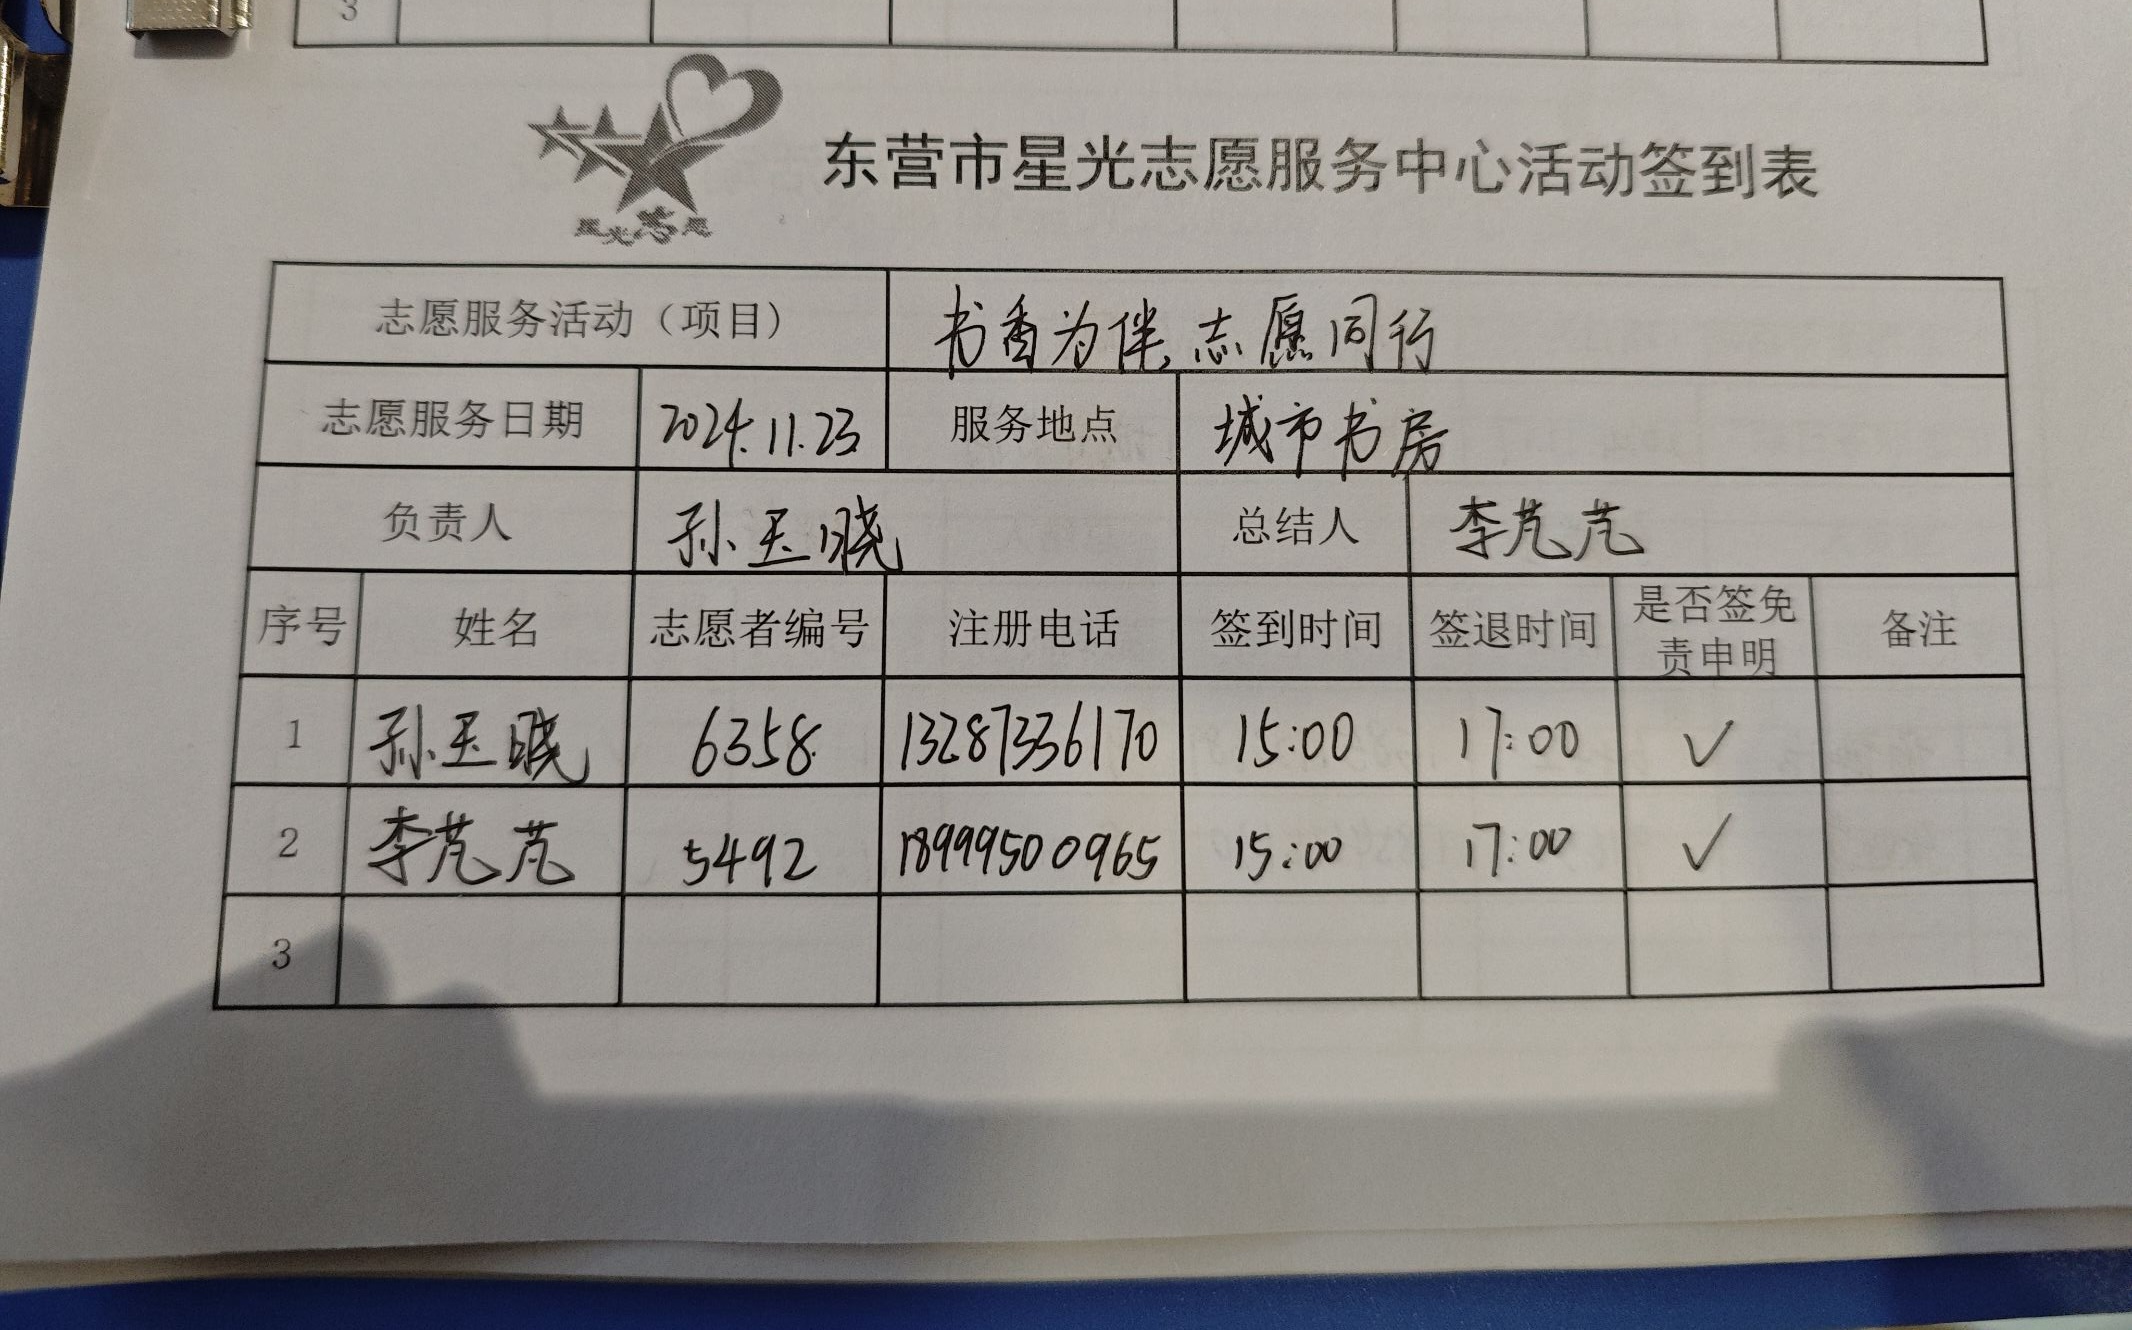 3
星光志愿
东营市星光志愿服务中心活动签到表
志愿服务活动（项目） 书香为伴,志愿同行
志愿服务日期 2024.11.23 服务地点 城市书房
负责人 孙玉晓 总结人 李芃芃
序号 姓名 志愿者编号 注册电话 签到时间 签退时间 是否签免责申明 备注
1 孙玉晓 6358 13287336170 15:00 17:00 ✓
2 李芃芃 5492 18999500965 15:00 17:00 ✓
3